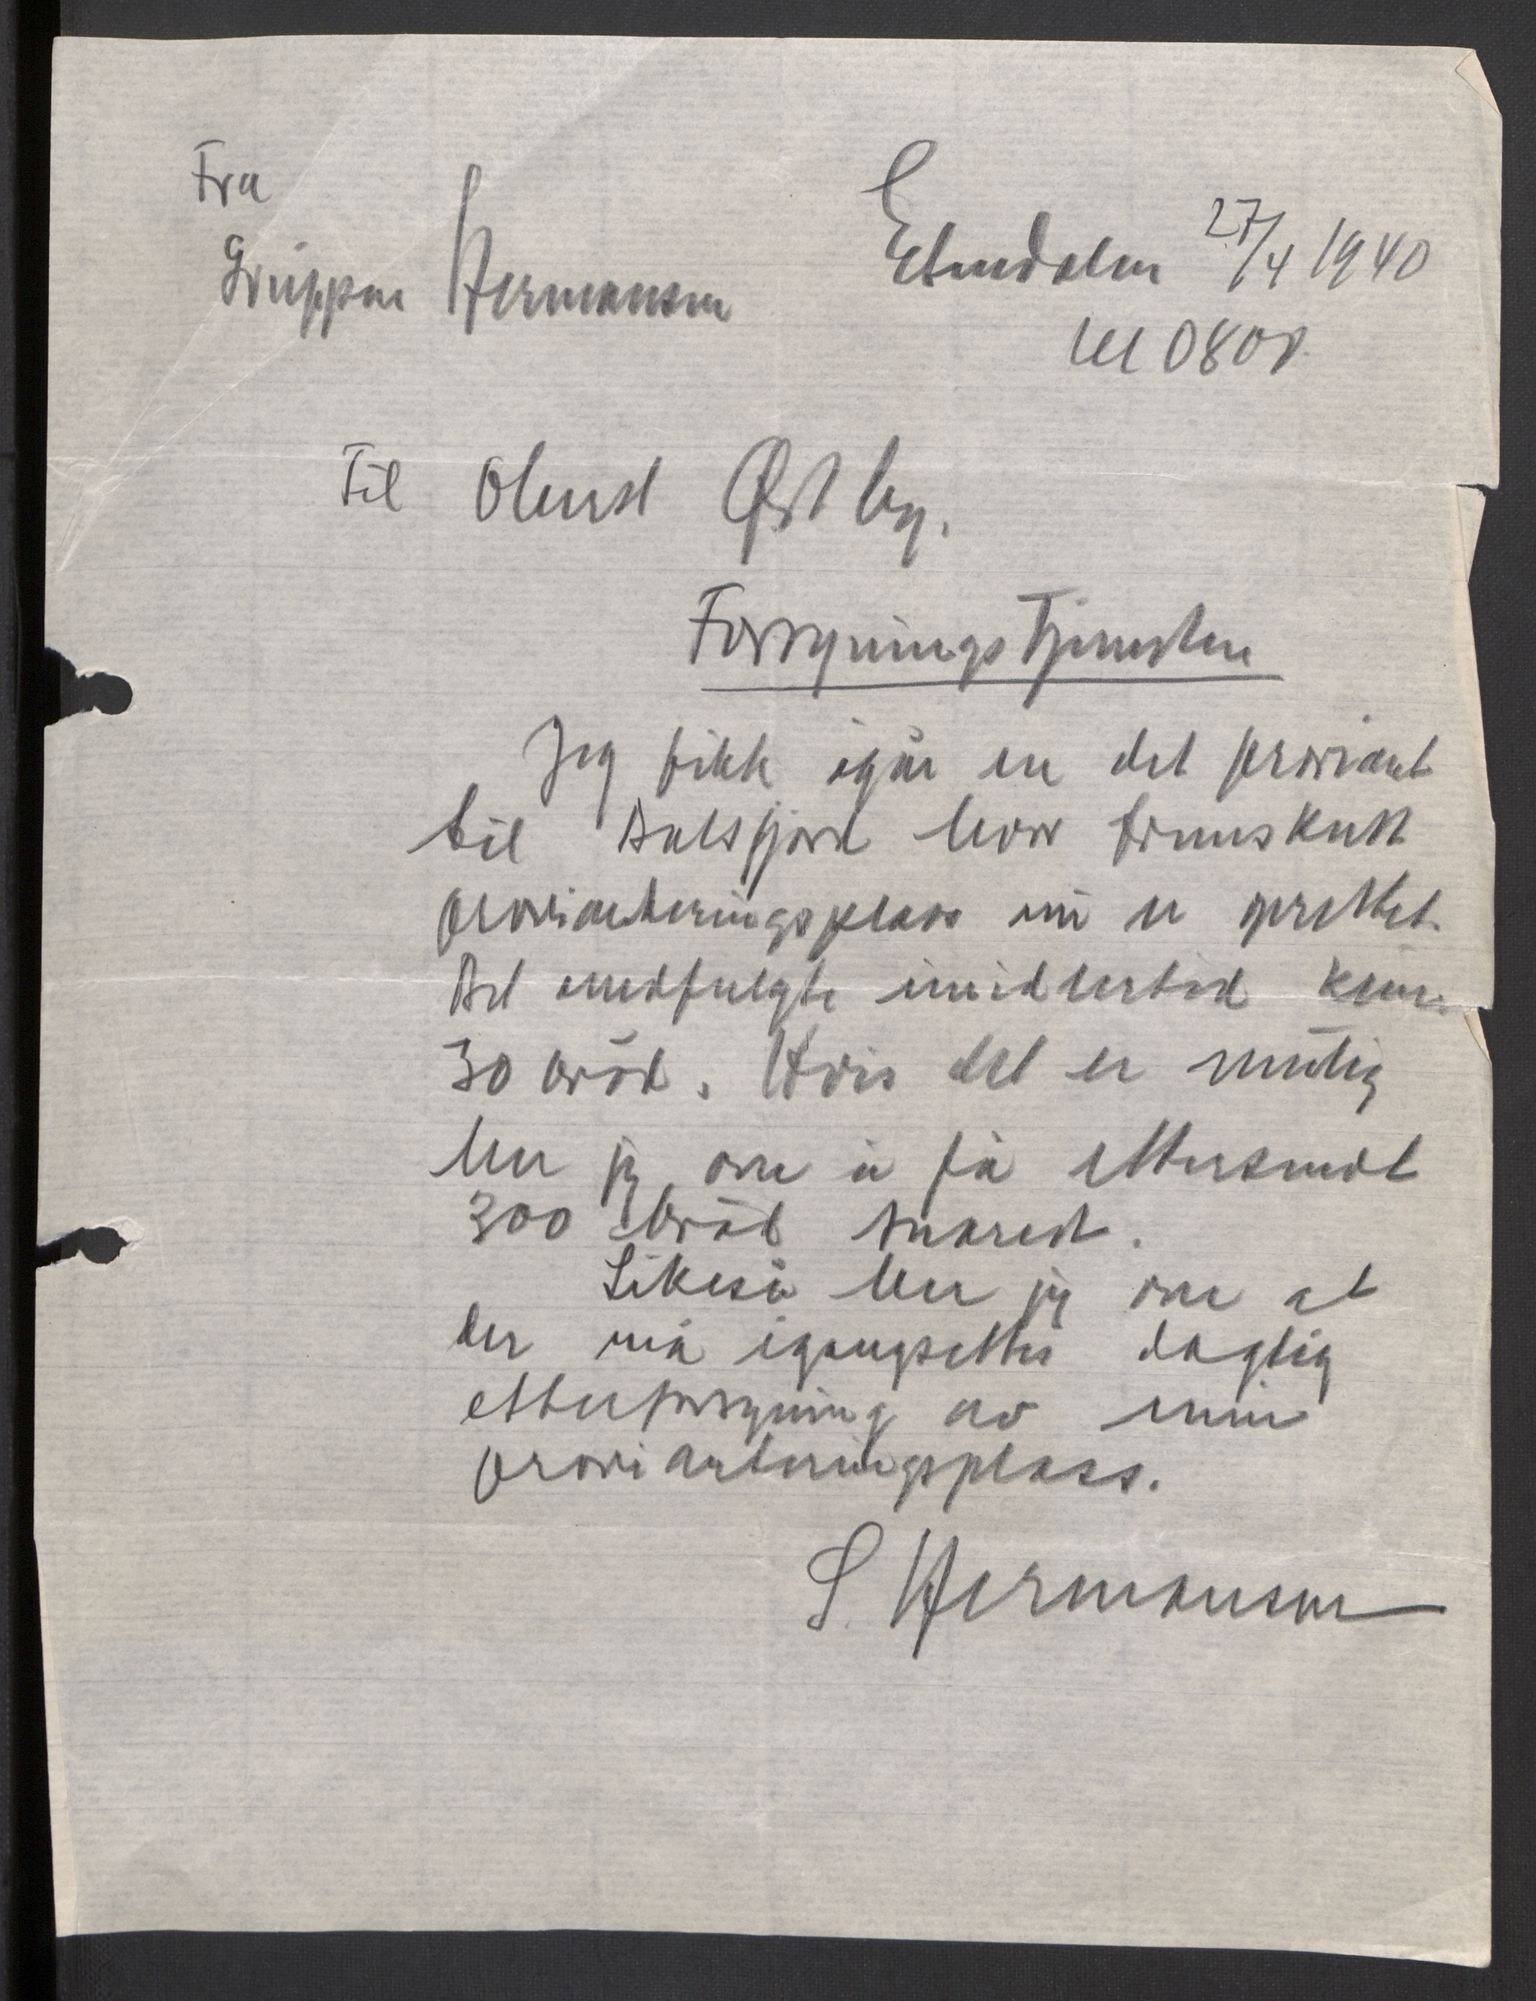 Fra
Gruppen Hermansen
Etnedalen 27/4 1940
kl 0800.
Til Oberst Østby.
Forsynings Tjenesten
Jeg fikk igår en del proviant
til Bålsfjord hvor fremskutt
provianteringsplass nu er oprettet.
Det medfulgte imidlertid kun
30 brød. Hvis det er mulig
ber jeg om å få ettersendt
300 brød snarest.
Likeså ber jeg om at
der må igangsettes daglig
etterforsyning av min
provianteringsplass.
S. Hermansen